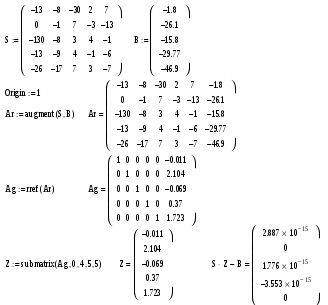 S := ( −13 −8 −30 2 7 B := ( −1.8
0 −1 7 −3 −13 −26.1
−130 −8 3 4 −1 −15.8
−13 −9 4 −1 −6 −29.77
−26 −17 7 3 −7 ) −46.9 )
Origin := 1
Ar := augment(S,B) Ar = ( −13 −8 −30 2 7 −1.8
0 −1 7 −3 −13 −26.1
−130 −8 3 4 −1 −15.8
−13 −9 4 −1 −6 −29.77
−26 −17 7 3 −7 −46.9 )
Ag := rref(Ar) Ag = ( 1 0 0 0 0 −0.011
0 1 0 0 0 2.104
0 0 1 0 0 −0.069
0 0 0 1 0 0.37
0 0 0 0 1 1.723 )
Z := submatrix(Ag,0,4,5,5) Z = ( −0.011
2.104
−0.069
0.37
1.723 )
S·Z − B = ( 2.887 × 10⁻¹⁵
0
1.776 × 10⁻¹⁵
−3.553 × 10⁻¹⁵
0 )